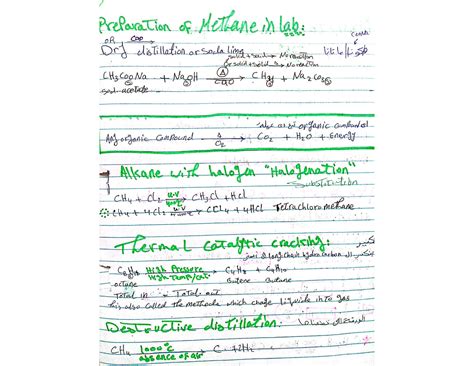 Preparation of Methane in lab:
OR
Dry distillation or soda lime
solid + solid → No reaction
or solid + solid → No reaction
CH3COONa + NaOH Δ CaO → CH4 + Na2CO3
sod. acetate
Any organic compound Δ O2 → CO2 + H2O + Energy
Alkane with halogen "Halogenation"
Substitution
CH4 + Cl2 u.v → CH3Cl + HCl
CH4 + 4Cl2 u.v → CCl4 + 4HCl Tetrachloromethane
Thermal catalytic cracking:
long chain hydrocarbon
C8H18 High Pressure High Temp/cat. → C4H8 + C4H10
octane butene Butane
Total in = Total out
this also called the methode which change liquide into gas
Destructive distillation:
CH4 1000°C absence of air → C + 2H2